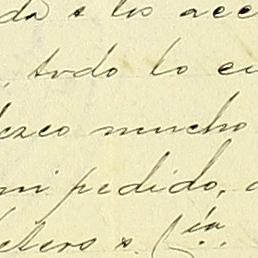 da a los acc
, todo lo cu
ezco mucho
mi pedido,
telero s. Cía.